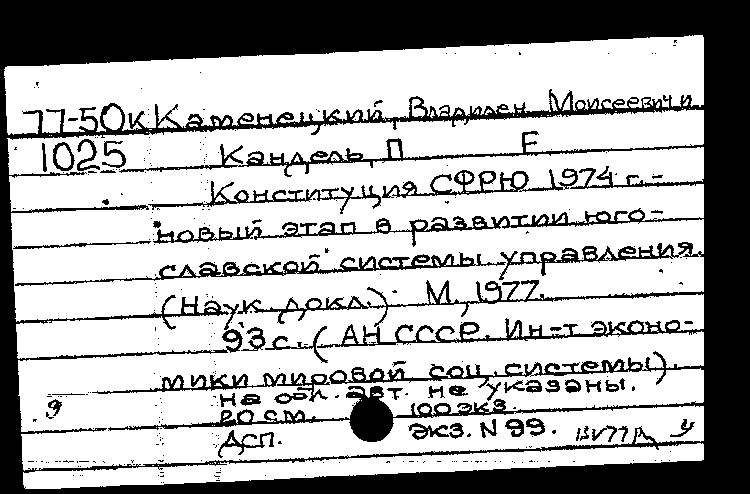 77-50к Каменецкий, Владилен Моисеевич и
1025 Кандель, П Е
Конституция СФРЮ 1974 г. -
новый этап в развитии юго-
славской системы управления.
(Наук. докл.) М., 1977.
93 с. (АН СССР. Ин-т эконо-
мики мировой соц. системы).
на обл. авт. не указаны.
9 20 см. 100 экз.
Дсп. экз. N 99.